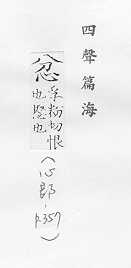 四聲篇海
忿
孚粉切恨
也怒也
(心部, p.357)